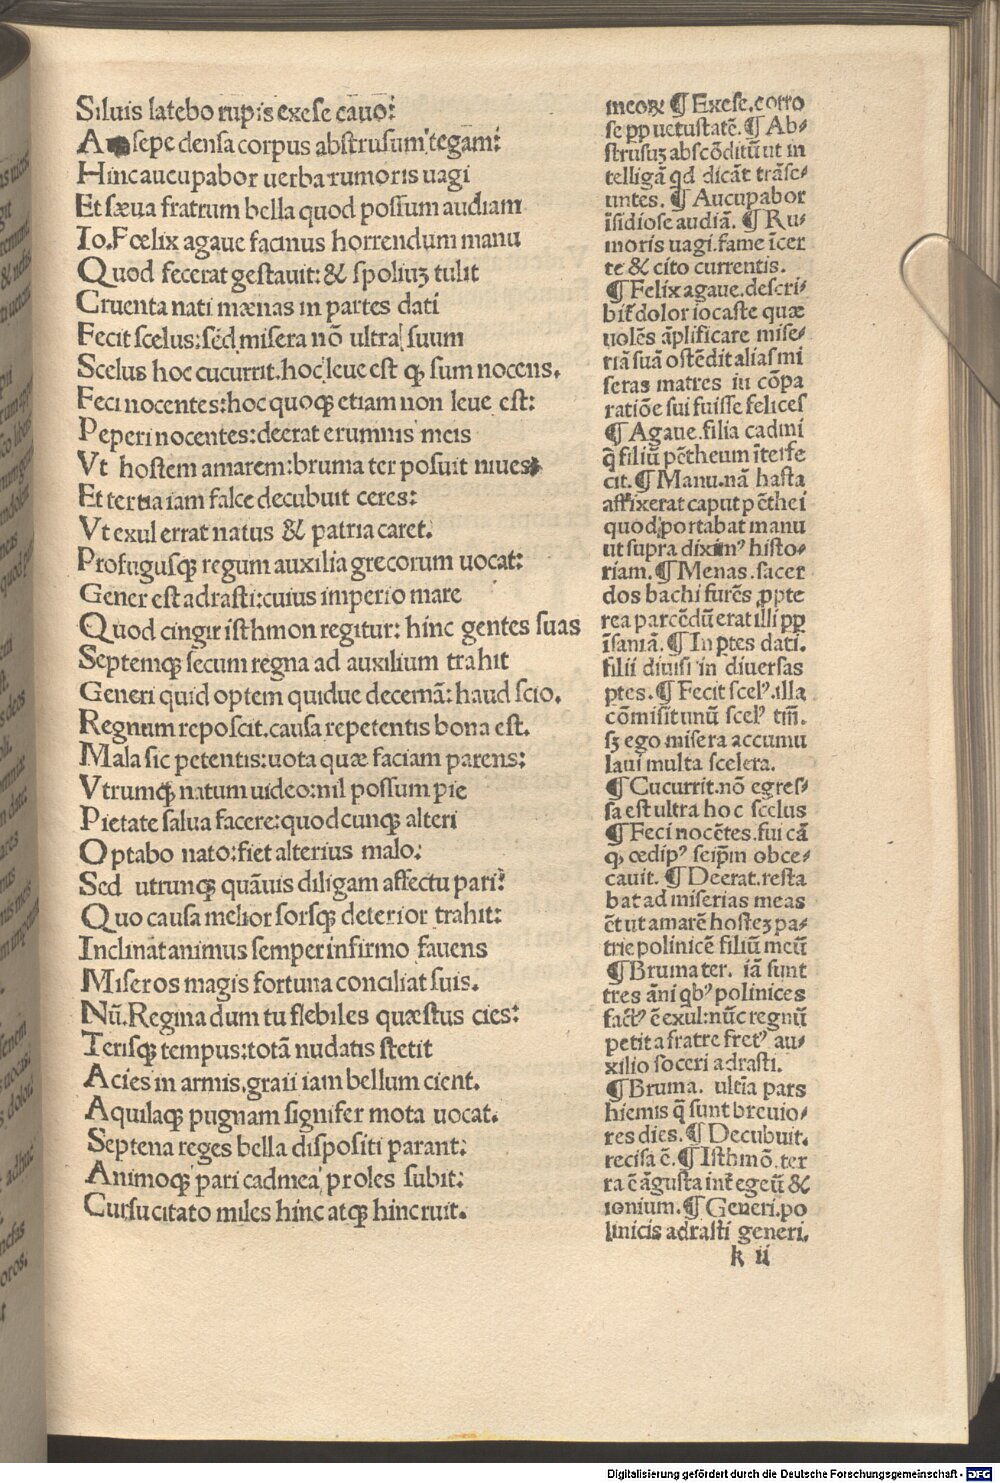 Siluis latebo rupis exese cauo:
A sepe densa corpus abstrusum tegam:
Hinc aucupabor uerba rumoris uagi
Et sæua fratrum bella quod possum audiam
Io. Fœlix agaue facinus horrendum manu
Quod fecerat gestauit: & spoliuꝫ tulit
Cruenta nati mænas in partes dati
Fecit scelus: sed misera nō ultra suum
Scelus hoc cucurrit. hoc leue est ꝙ sum nocens.
Feci nocentes: hoc quoqꝫ etiam non leue est:
Peperi nocentes: deerat erumnis meis
Vt hostem amarem: bruma ter posuit niues
Et tertia iam falce decubuit ceres:
Vt exul errat natus & patria caret.
Profugusqꝫ regum auxilia grecorum uocat:
Gener est adrasti: cuius imperio mare
Quod cingit isthmon regitur: hinc gentes suas
Septemqꝫ secum regna ad auxilium trahit
Generi quid optem quidue decernā: haud scio.
Regnum reposcit. causa repetentis bona est.
Mala sic petentis: uota quæ faciam parens:
Vtrumqꝫ natum uideo: nil possum pie
Pietate salua facere: quodcunqꝫ alteri
Optabo nato: fiet alterius malo:
Sed utrunqꝫ quāuis diligam affectu pari:
Quo causa melior sorsqꝫ deterior trahit:
Inclinat animus semper infirmo fauens
Miseros magis fortuna conciliat suis.
Nū. Regina dum tu flebiles quæstus cies:
Terisqꝫ tempus: totā nudatis stetit
Acies in armis. graii iam bellum cient.
Aquilaqꝫ pugnam signifer mota uocat.
Septena reges bella dispositi parant:
Animoqꝫ pari cadmea proles subit:
Cursu citato miles hinc atqꝫ hinc ruit.
meoꝝ ¶ Exese. corro
se ꝓp uetustatē. ¶ Ab-
strusuꝫ abscōditū ut in
telligā qd dicāt trāse-
untes. ¶ Aucupabor
īsidiose audiā. ¶ Ru-
moris uagi. fame īcer
te & cito currentis.
¶ Felix agaue. descri-
bit̄ dolor iocaste quæ
uolēs āplificare mise-
riā suā ostēdit alias mi
seras matres in cōpa
ratiōe sui fuisse felices
¶ Agaue. filia cadmi
q̄ filiū pētheum īterfe
cit. ¶ Manu. nā hasta
affixerat caput pēthei
quod portabat manu
ut supra diximꝰ histo-
riam. ¶ Menas. sacer
dos bachi furēs ꝓpte
rea parcēdū erat illi ꝓp
īsaniā. ¶ In ꝑtes dati.
filii diuisi in diuersas
ꝑtes. ¶ Fecit scelꝰ. illa
cōmisit unū scelꝰ tm̄.
sꝫ ego misera accumu
laui multa scelera.
¶ Cucurrit. nō egres-
sa est ultra hoc scelus
¶ Feci nocētes. fui cā
ꝙ œdipꝰ seip̄m obce-
cauit. ¶ Deerat. resta
bat ad miserias meas
ēt ut amarē hosteꝫ pa-
trie polinicē filiū meū
¶ Bruma ter. iā sunt
tres āni qbꝰ polinices
factꝰ ē exul: nūc regnū
petit a fratre fretꝰ au-
xilio soceri adrasti.
¶ Bruma. ultīa pars
hiemis q̄ sunt breuio-
res dies. ¶ Decubuit.
recisa ē. ¶ Isthmō. ter
ra ē āgusta int̄ egeū &
ionium. ¶ Generi. po
linicis adrasti generi.
k ii
Digitalisierung gefördert durch die Deutsche Forschungsgemeinschaft - DFG